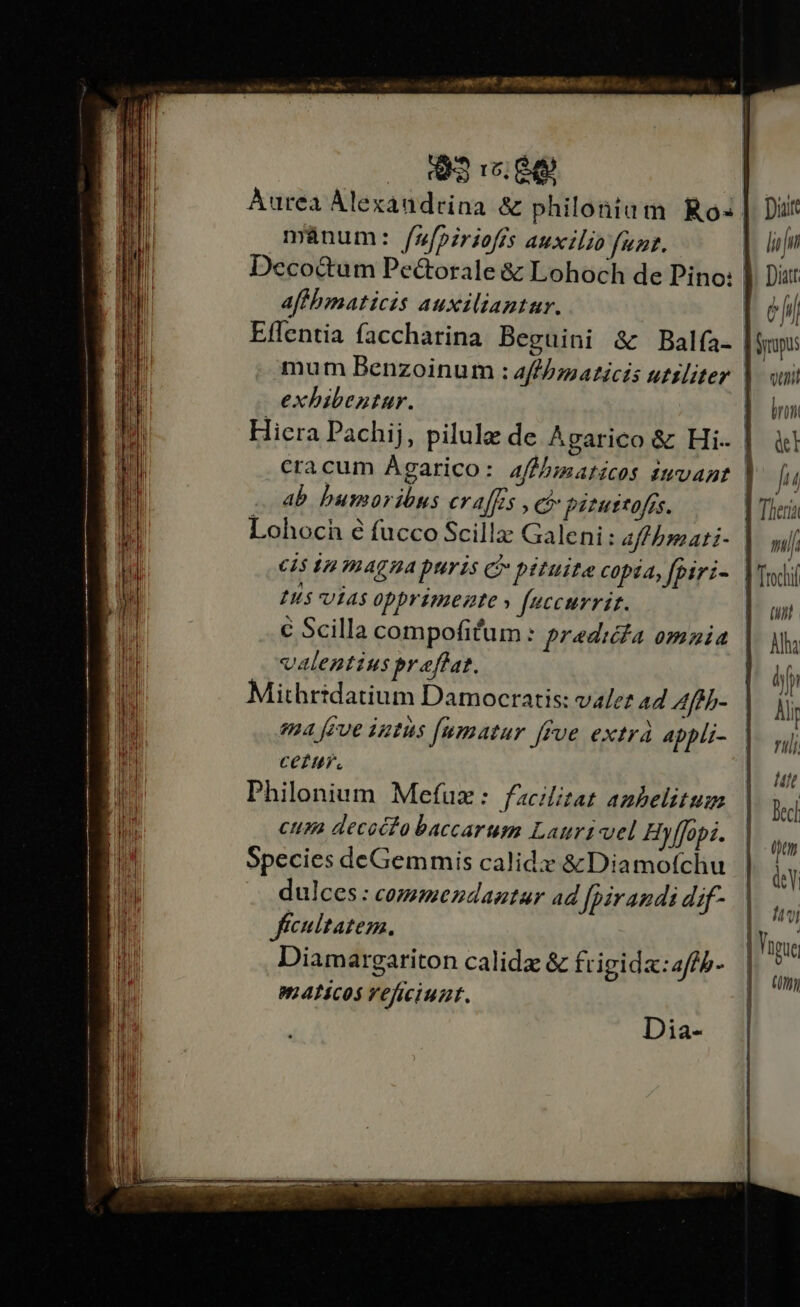 16.
Aurea Alexandrina & philonium Ro-
mânum: ſuſpirioſis auxilio ſunt.
Decoctum Pectorale & Lohoch de Pino:
aſthmaticis auxiliantur.
Eſſentia ſaccharina Beguini & Balſa-
mum Benzoinum : aſthmaticis utiliter
exhibentur.
Hiera Pachij, pilulæ de Agarico & Hi-
era cum Agarico: aſthmaticos iuvant
ab humoribus craſſis , & pituitoſis.
Lohoch è ſucco Scillæ Galeni : aſthmati-
cis in magna puris & pituitæ copia, ſpiri-
tus vias opprimente , ſuccurrit.
è Scilla compoſitum : prædicta omnia
valentius præſtat.
Mithridatium Damocratis: valet ad Aſth-
ma ſive intùs ſumatur ſive extrà appli-
cetur.
Philonium Meſuæ : facilitat anhelitum
cum decocto baccarum Lauri vel Hyſſopi.
Species de Gemmis calidæ & Diamoſchu
dulces : commendantur ad ſpirandi dif-
ficultatem.
Diamargariton calidæ & frigidæ: aſth-
maticos reficiunt.
Dia-